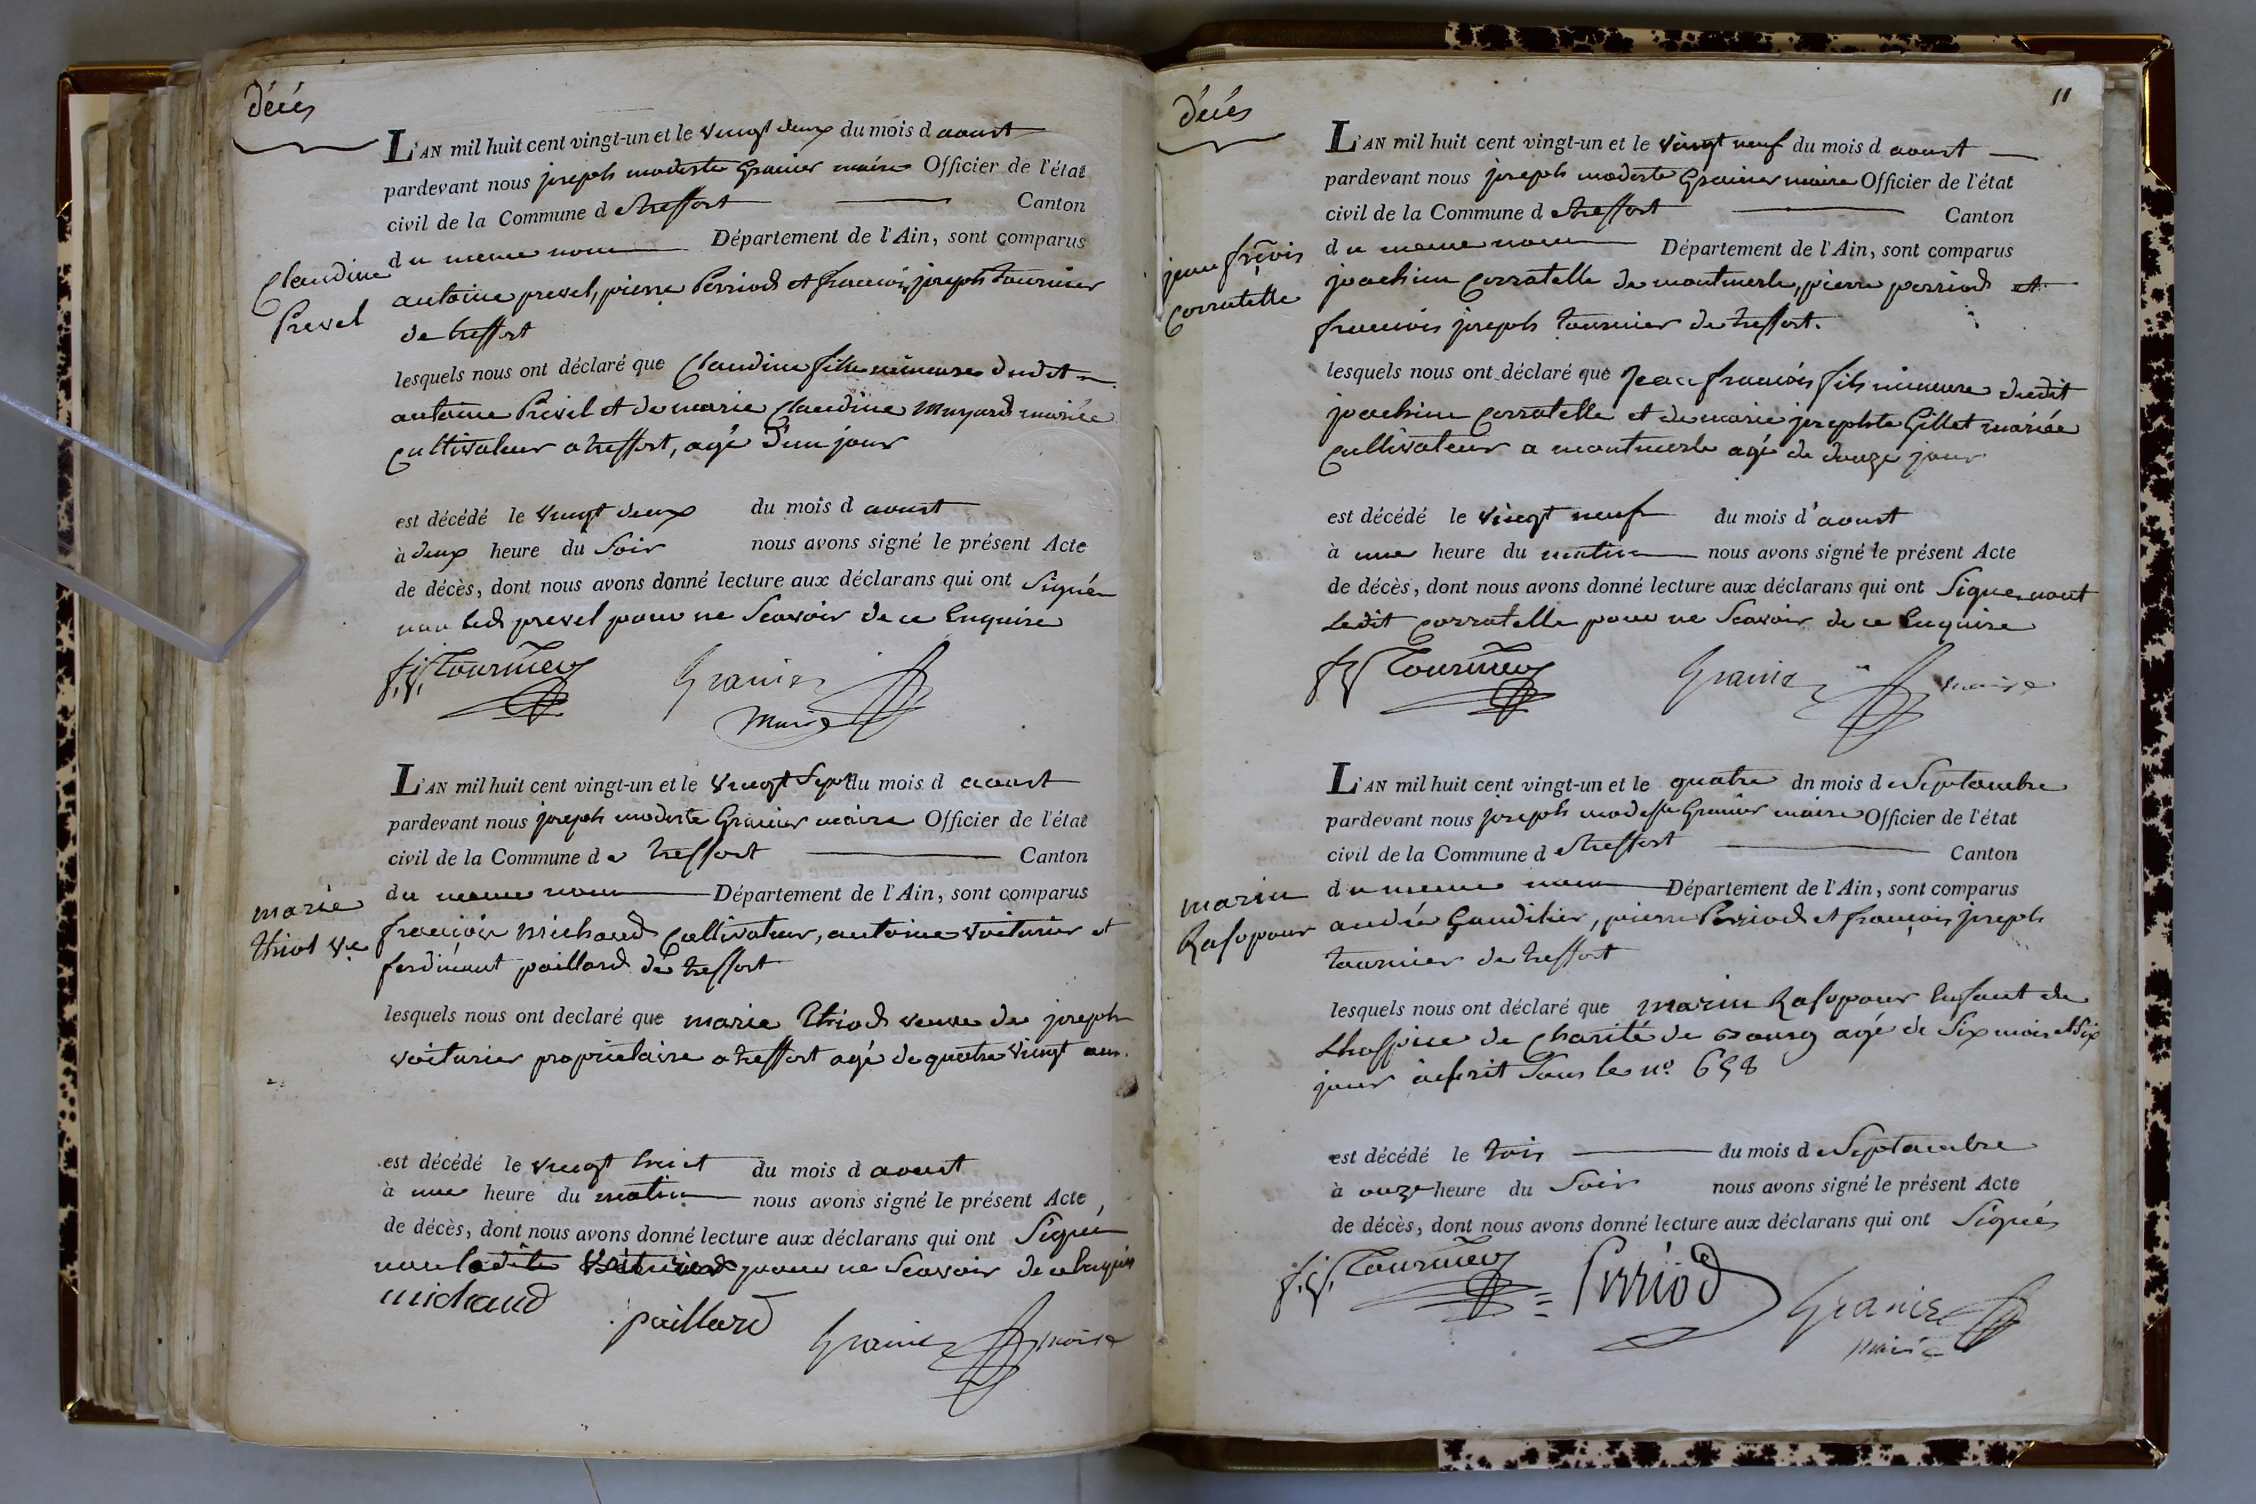 décés
L'AN mil huit cent vingt-un et le vingt deux du mois d aoust
pardevant nous joseph modeste Granier maire Officier de l'état
civil de la Commune d e treffort Canton
du meme nom Département de l'Ain, sont comparus
Claudine
Prevel
antoine prevel, pierre Perriod et francois joseph tournier
de treffort
lesquels nous ont déclaré que Claudine fille mineure dudit
antoine Prevel et de marie Claudine mariée
cultivateur a treffort, agé d'un jour
est décédé le vingt deux du mois d aoust
à deux heure du soir nous avons signé le présent Acte
de décès, dont nous avons donné lecture aux déclarans qui ont signés
non led prevel pour ne scavoir de ce enquire
f.j. Tournier Granier
maire
L'AN mil huit cent vingt-un et le vingt sept du mois d aoust
pardevant nous joseph modeste Granier maire Officier de l'état
civil de la Commune d e treffort Canton
du meme nom Département de l'Ain, sont comparus
marie
thiot ve
francois michaud cultivateur, antoine voiturier et
ferdinant paillard de treffort
lesquels nous ont declaré que marie thiod veuve de joseph
voiturier proprietaire a treffort agé de quatre vingt ans
est décédé le vingt huit du mois d aoust
à une heure du matin nous avons signé le présent Acte
de décès, dont nous avons donné lecture aux déclarans qui ont signé
non pour ne scavoir de ce enquis
michaud paillard Granier maire
décés
11
L'AN mil huit cent vingt-un et le vingt neuf du mois d aoust
pardevant nous joseph modeste Granier maire Officier de l'état
civil de la Commune d e treffort Canton
du meme nom Département de l'Ain, sont comparus
jean frçois
corratelle
joachim corratelle de montmerle, pierre perriod et
francois joseph tournier de treffort.
lesquels nous ont déclaré que Jean francois fils mineure dudit
joachim corratelle et de marie josephte Gillet mariée
cultivateur a montmerle agé de douze jour
est décédé le vingt neuf du mois d'aoust
à une heure du matin nous avons signé le présent Acte
de décès, dont nous avons donné lecture aux déclarans qui ont signe, nont
Ledit corratelle pour ne scavoir de ce enquire
f j Tournier Granier maire
L'AN mil huit cent vingt-un et le quatre dn mois d e Septambre
pardevant nous joseph modeste Granier maire Officier de l'état
civil de la Commune d e treffort Canton
du meme nom Département de l'Ain, sont comparus
marin
Rasopour
andré Gaudilier, pierre Perriod et francois joseph
tournier de treffort
lesquels nous ont déclaré que marin Rasopour enfant de
Lhospice de Charité de Bourg agé de six mois et six
jour inscrit sous le no 658
est décédé le trois du mois d e Septambre
à onze heure du soir nous avons signé le présent Acte
de décès, dont nous avons donné lecture aux déclarans qui ont signés
f.j. Tournier Perriod Granier
maire